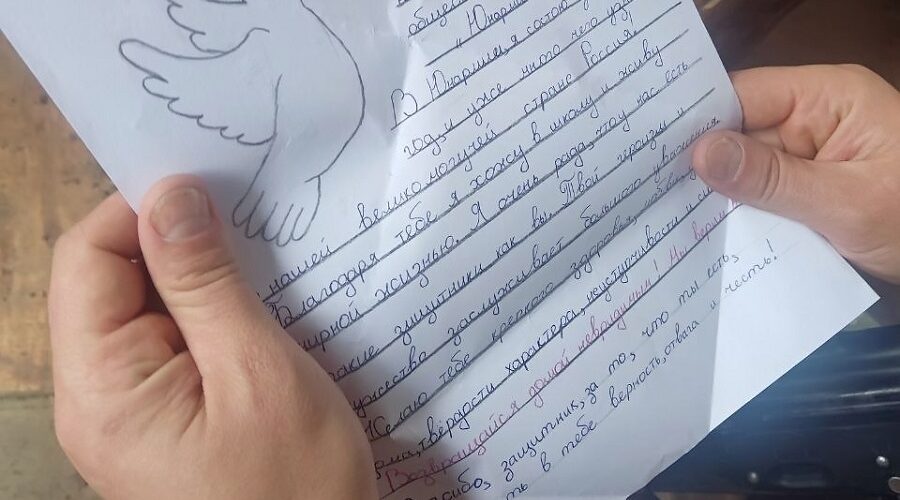 "Юнарми
В Юнармии я состою
год, и уже много чего узн
нашей великомогучей стране Россия.
Благодаря тебе я хожу в школу и живу
мирной жизнью. Я очень рада, что у нас есть
такие защитники как вы. Твой героизм и
мужество заслуживает большого уважения.
Желаю тебе крепкого здоровья,
твёрдости характера, неуступчивости и
Возвращайся домой невредимым! Мы верим
Спасибо, защитник, за то, что ты есть,
ть в тебе верность, отвага и честь!